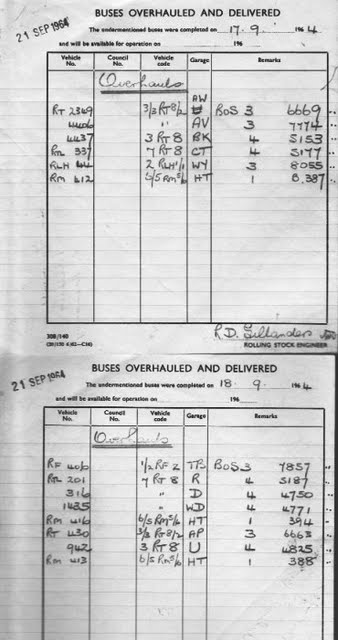 BUSES OVERHAULED AND DELIVERED
21 SEP 1964
The undermentioned buses were completed on 17. 9. 1964
and will be available for operation on 196
Vehicle No. Council No. Vehicle code Garage Remarks
Overhauls
AW
RT 2349 3/3 RT8/2 BOS 3 6669 "
4406 " AV 3 7774 "
4437 3 RT 8 BK 4 5153 "
RTL 337 7 RT 8 CT 4 5177 "
RLH 44 2 RLH1/1 WY 3 8055 "
RM 412 5/5 RM5/6 HT 1 B.387 "
308/140
ROLLING STOCK ENGINEER
BUSES OVERHAULED AND DELIVERED
21 SEP 1964
The undermentioned buses were completed on 18. 9. 1964
and will be available for operation on 196
Vehicle No. Council No. Vehicle code Garage Remarks
Overhauls
RF 406 1/2 RF 2 TB BOS 3 7857 "
RTL 201 7 RT 8 R 4 5187 "
316 " D 4 4750 "
1435 " WD 4 4771 "
RM 416 6/5 RM5/6 HT 1 394 "
RT 430 3/3 RT8/2 AP 3 6663 "
942 3 RT 8 U 4 4825 "
RM 413 6/5 RM5/6 HT 1 388 "